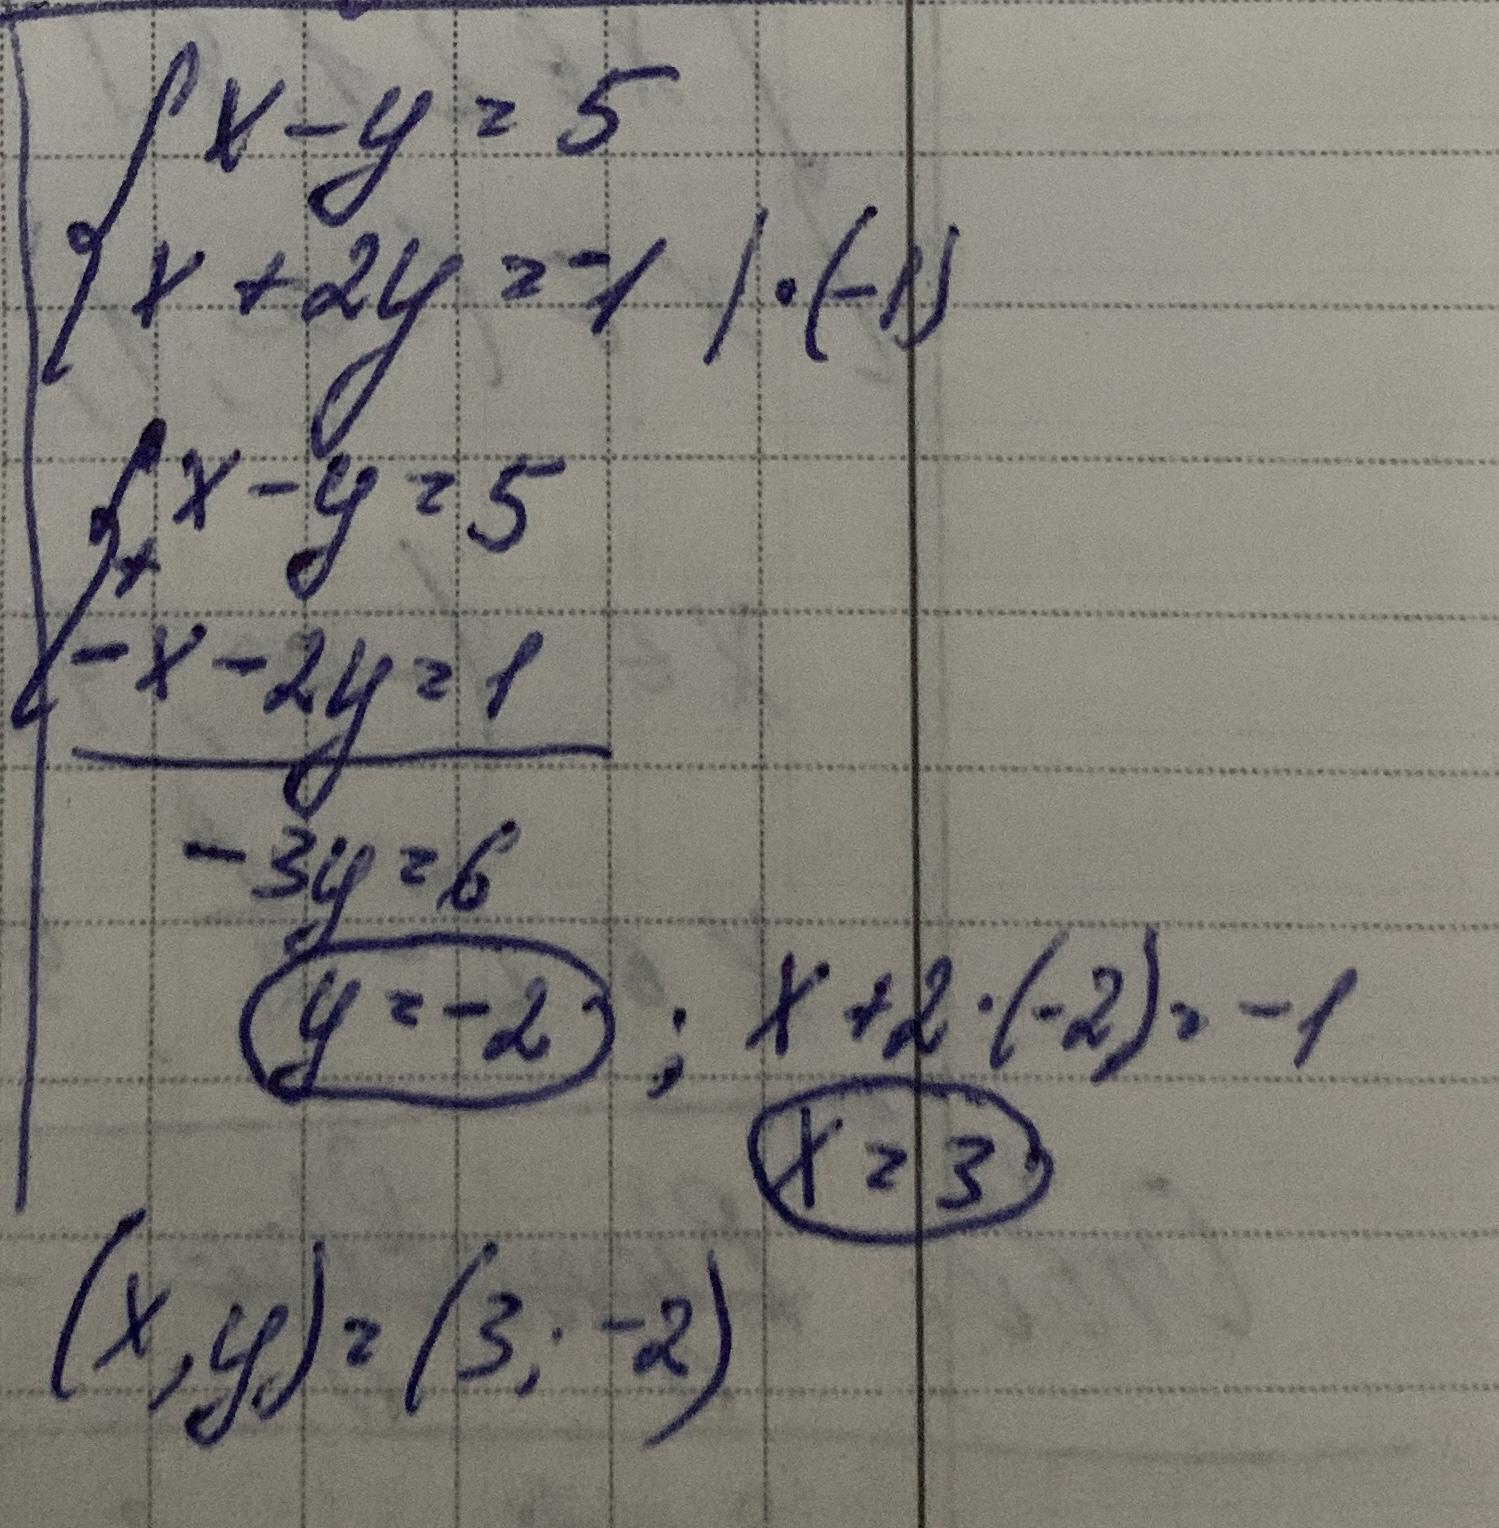 x - y = 5
x + 2y = -1 / · (-1)
x - y = 5
+
-x - 2y = 1
-3y = 6
y = -2 ; x + 2 · (-2) = -1
x = 3
(x, y) = (3; -2)